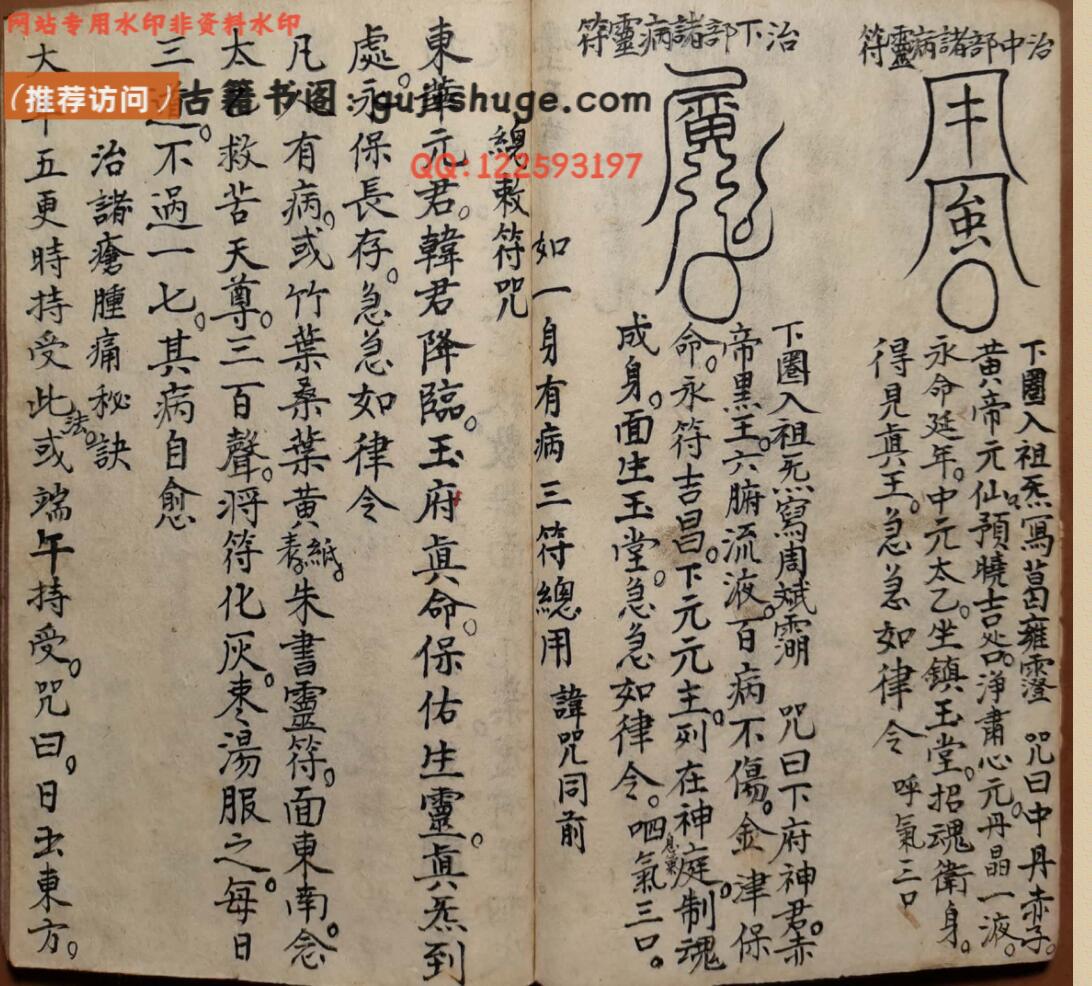 网站专用水印非资料水印
(推荐访问)古籍书阁:gujishuge.com
QQ:122593197
治中部諸病靈符
下圈入祖炁寫葛雍霪 咒曰中丹赤子。
黄帝元仙。預曉吉処。浄肅心元。丹晶一液。
永命延年。中元太乙。坐鎮玉堂。招魂衛身。
得見眞王。急急如律令 呼氣三口
治下部諸病靈符
下圈入祖炁寫周斌 咒曰下府神君。赤
帝黑王。六腑流液。百病不傷。金津保
命。永符吉昌。下元元主。列在神庭。制魂
成身。面生玉堂。急急如律令。呬氣三口。
如一身有病三符總用 諱咒同前
總敕符咒
東華元君。韓君降臨。玉府眞命。保佑生靈。眞炁到
處。永保長存。急急如律令
凡人有病。或竹葉桑葉黄表紙。朱書靈符。面東南。念
太乙救苦天尊。三百聲。将符化灰。枣湯服之。每日
三道。不過一七。其病自愈
治諸瘡腫痛秘訣
大年五更時持受此法。或端午持受。咒曰。日出東方。